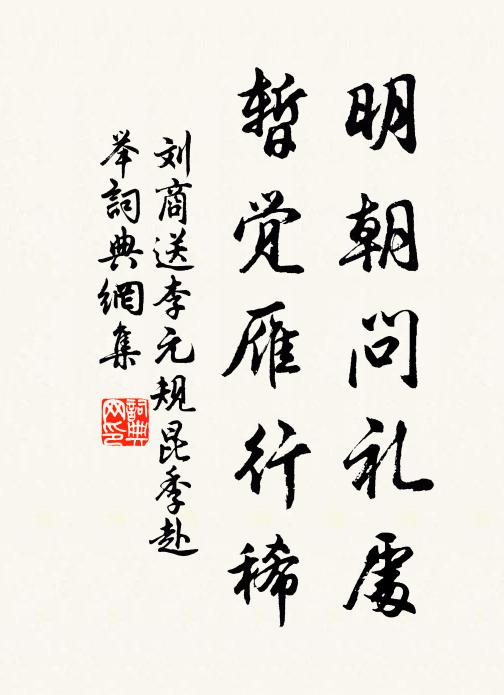 明朝问礼處
暂觉雁行稀
刘商送李元规昆季赴
举詞典網集
詞典网印